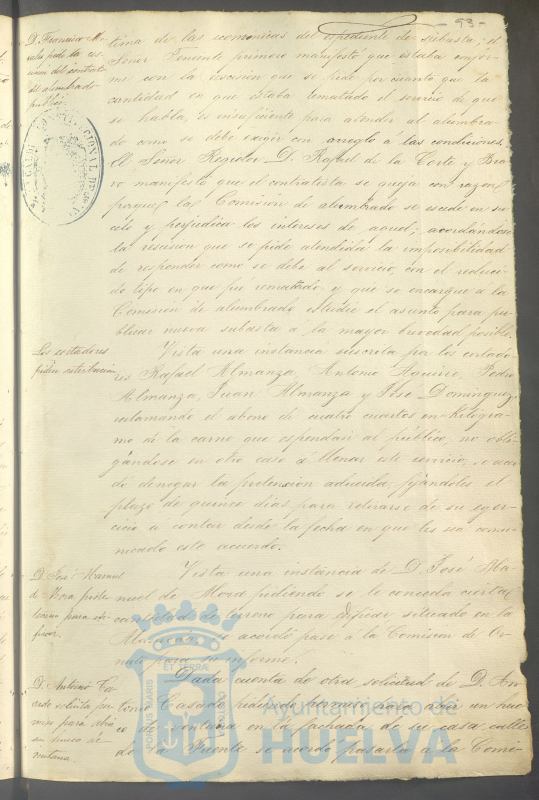 - 93 -
D. Francisco Mo-
rales pide la res-
cision del contrato
del alumbrado
público
tima de las económicas del expediente de subasta, el
Señor Teniente primero manifestó que estaba confor-
me con la rescision que se pide por cuanto que la
cantidad en que estaba rematado el servicio de que
se habla, es insuficiente para atender al alumbra-
do como se debe exijir con arreglo á las condiciones.
El Señor Regidor D. Rafael de la Corte y Bra-
vo manifestó que el contratista se queja con razon
porque la Comision de alumbrado se escede en su
celo y perjudica los intereses de aquel; acordandose
la rescision que se pide atendida la imposibilidad
de responder como se debe al servicio, con el reduci-
do tipo en que fue rematado y que se encargue á la
Comision de alumbrado estudie el asunto para pu-
blicar nueva subasta á la mayor brevedad posible.
Los cortadores
piden retribucion
Vista una instancia suscrita por los cortado-
res Rafael Almanza, Antonio Aguirre, Pedro
Almanza, Juan Almanza y José Dominguez
reclamando el abono de cuatro cuartos en Kilógra-
mo de la carne que espendan al público, no obli-
gándose en otro caso á llenar este servicio, se acor-
dó denegar la pretension aducida, fijándoles el
plazo de quince dias para retirarse de su ejer-
cicio a contar desde la fecha en que les sea comu-
nicado este acuerdo.
D. José Manuel
de Mora pide
terreno para edi-
ficar.
Vista una instancia de D. José Ma-
nuel de Mora pidiendo se le conceda cierta
cantidad de terreno para edificar situado en la
se acordó pase á la Comision de Or-
nato para su informe.
D. Antonio Ca-
sado solicita per-
miso para abrir
un hueco de
ventana.
Dada cuenta de otra solicitud de D. An-
tonio Casado pidiendo permiso para abrir un hue-
co de ventana en la fachada de su casa calle
de la Fuente se acordó pasarla á la Comi-
PORTUS MARIS
ET TERRAE
Ayuntamiento de
HUELVA